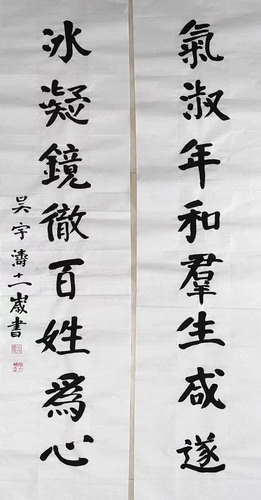 氣淑年和羣生咸遂
冰凝鏡徹百姓為心
吴宇濤十一歲書